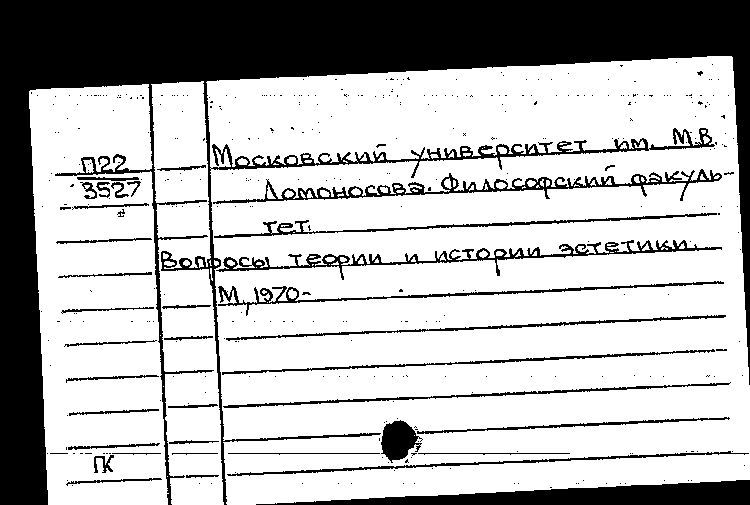 П22
3527
Московский университет им. М.В.
Ломоносова. Философский факуль-
тет.
Вопросы теории и истории эстетики.
М., 1970-
ПК